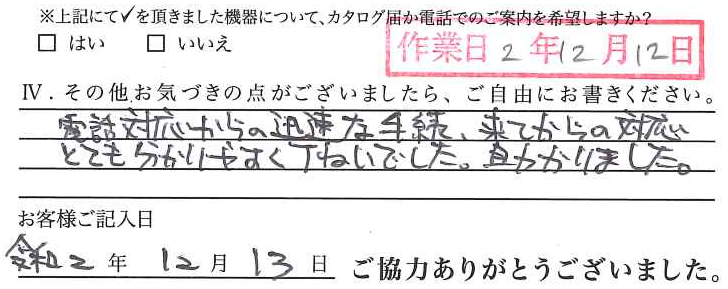 ※上記にて✓を頂きました機器について、カタログ届か電話でのご案内を希望しますか?
□ はい □ いいえ
作業日 2年12月12日
Ⅳ. その他お気づきの点がございましたら、ご自由にお書きください。
電話対応からの迅速な手続、来てからの対応
とても分かりやすく丁ねいでした。助かりました。
お客様ご記入日
令和2年12月13日 ご協力ありがとうございました。